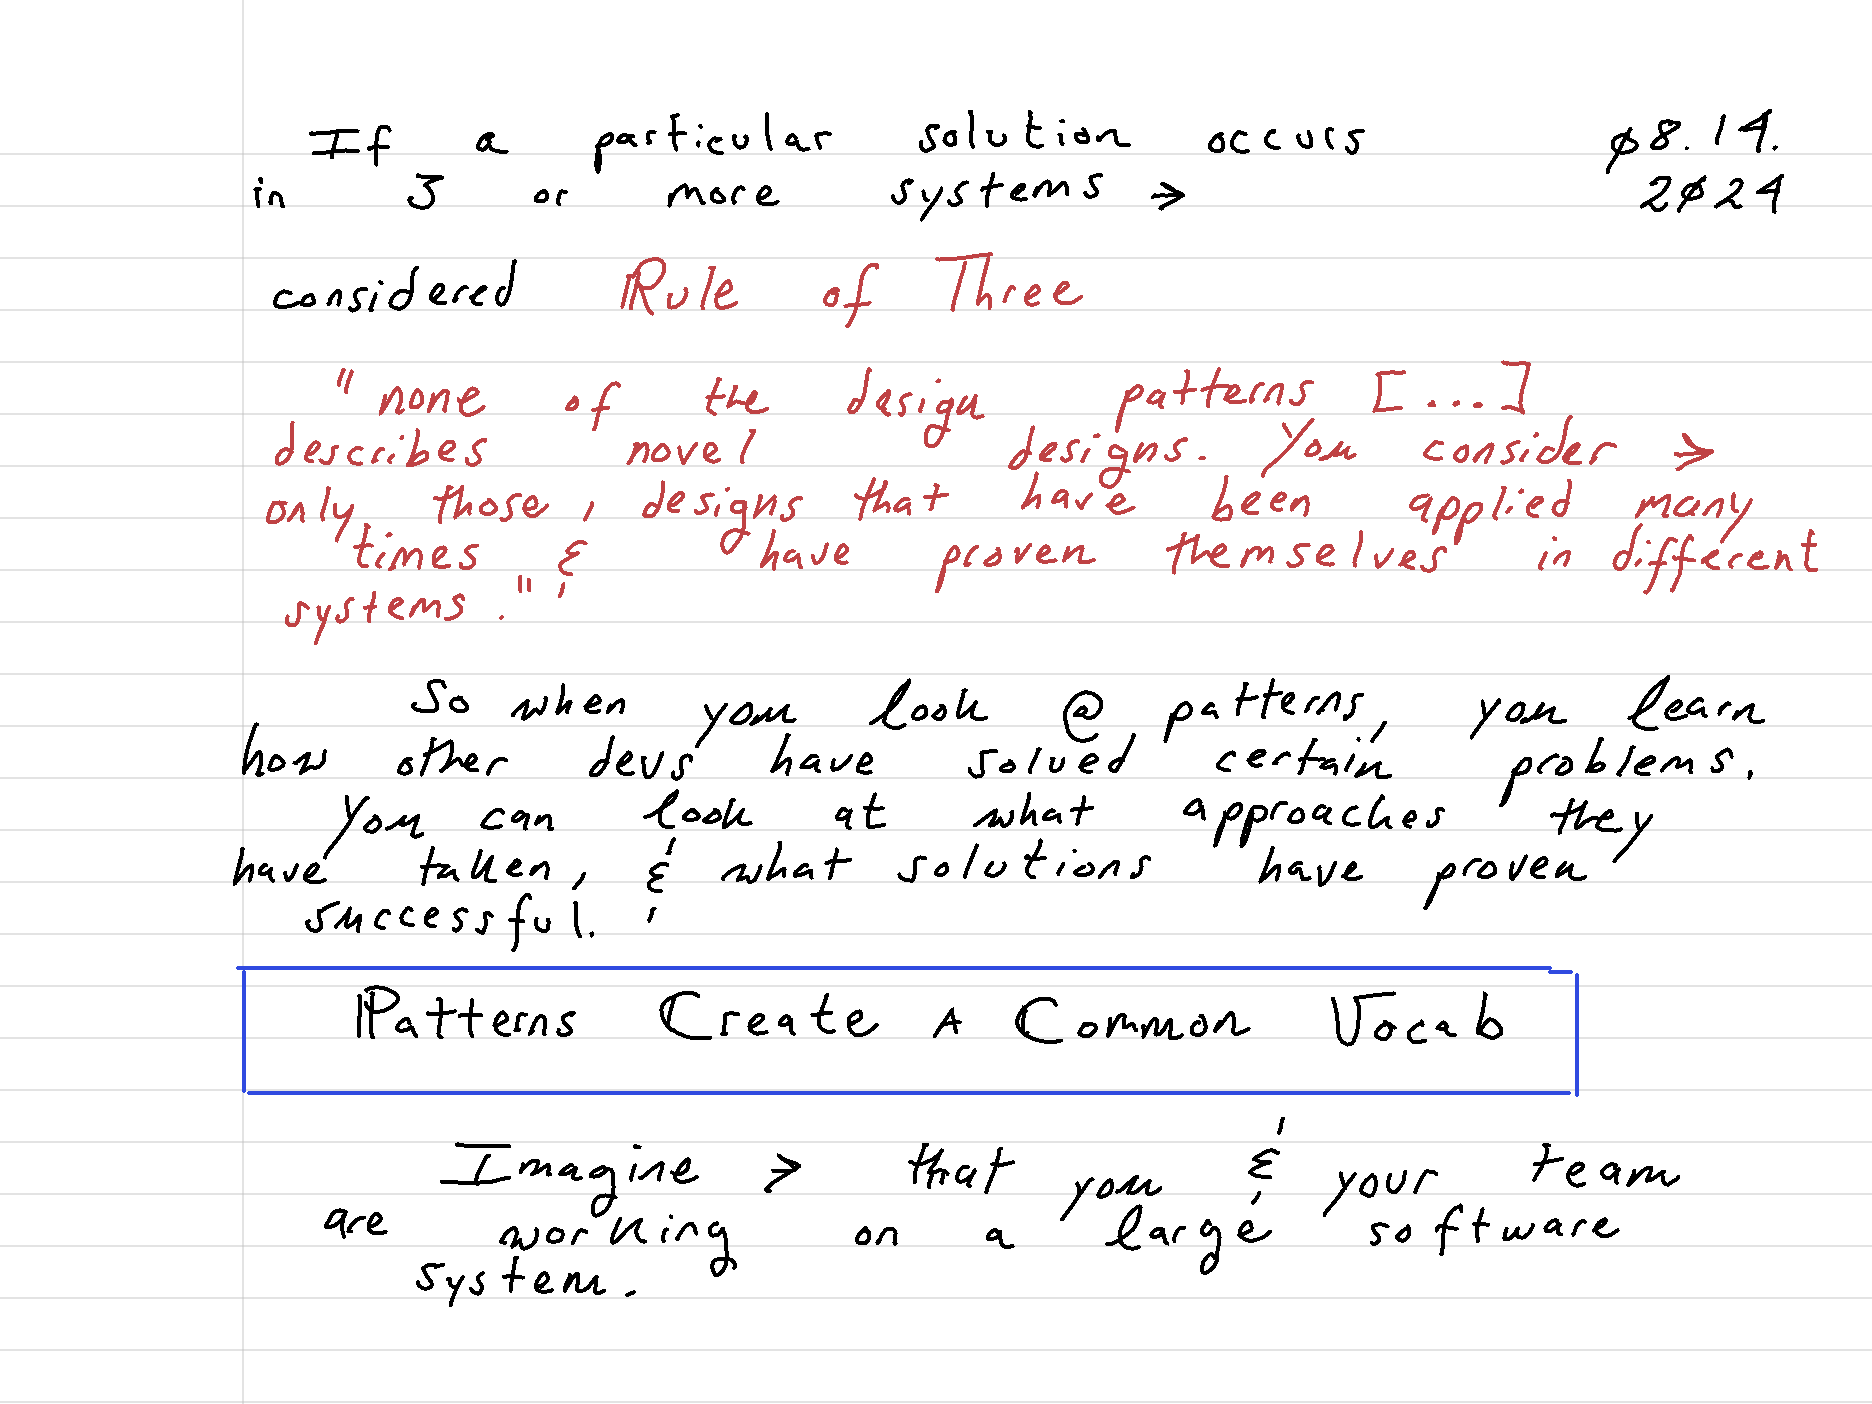 If a particular solution occurs
in 3 or more systems →
08.14.
2024
considered Rule of Three
"none of the design patterns [...]
describes novel designs. You consider →
only those, designs that have been applied many
times & have proven themselves in different
systems."
So when you look @ patterns, you learn
how other devs have solved certain problems.
You can look at what approaches they
have taken, & what solutions have proven
successful.
Patterns Create A Common Vocab
Imagine → that you & your team
are working on a large software
system.